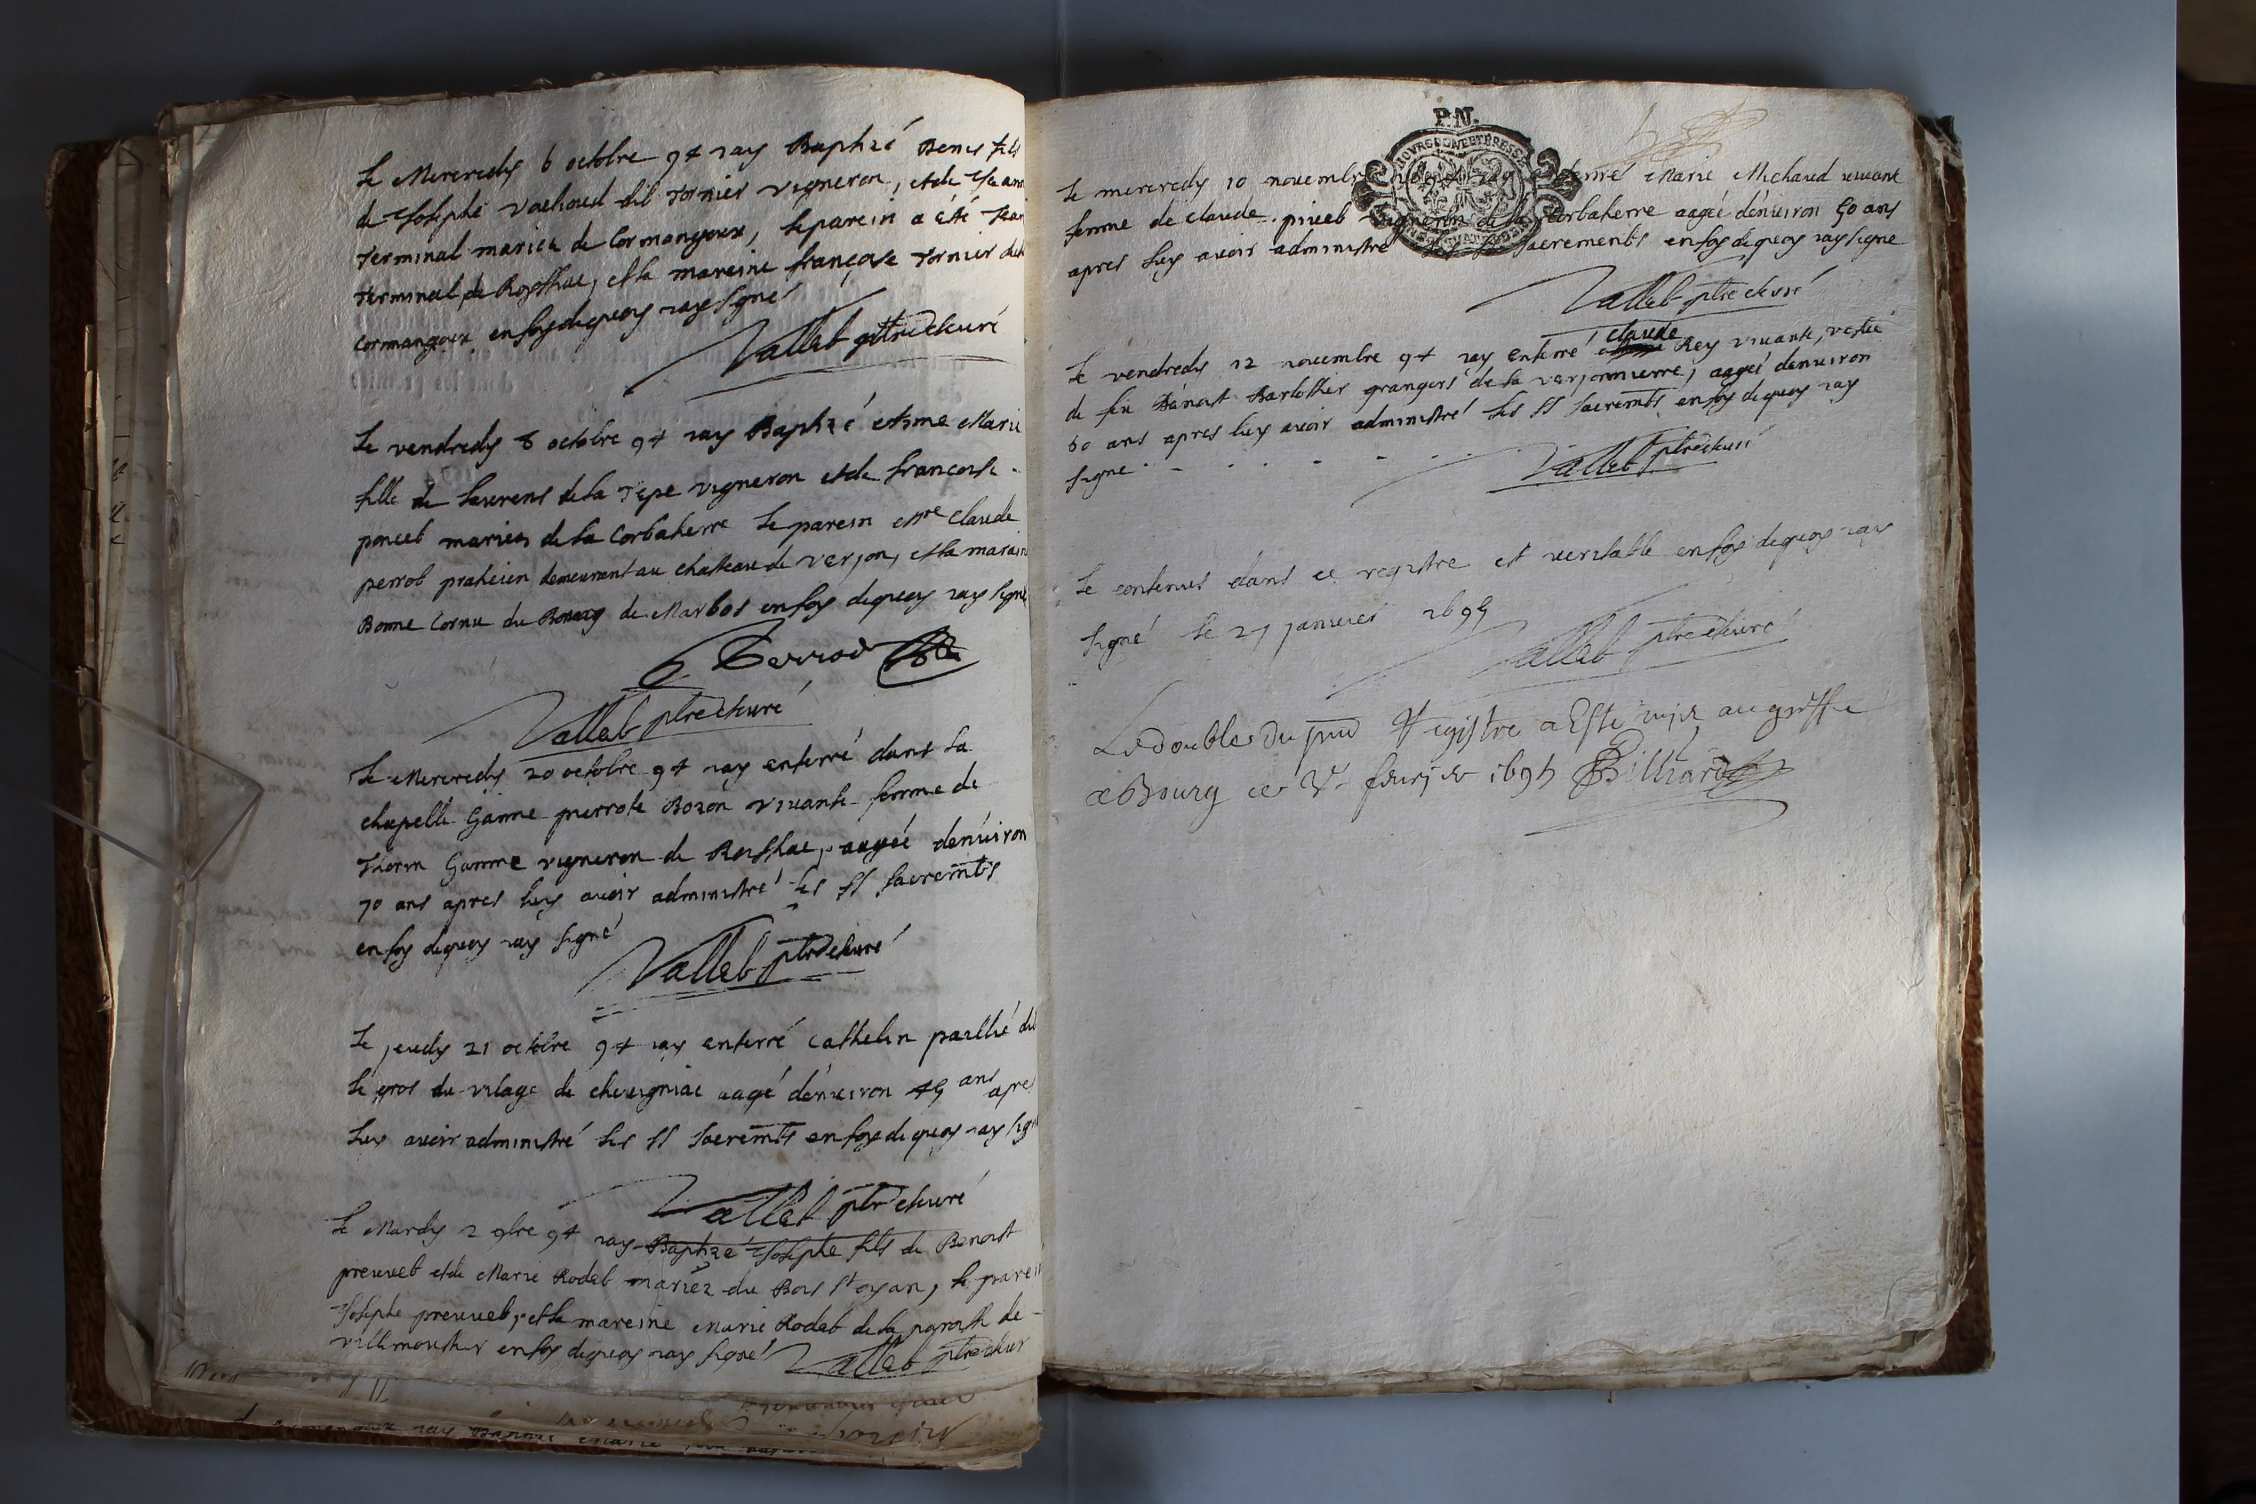 Le Mercredy 6 octobre 94 jay Baptizé Denis fils
de Josephe Vachoud dit Tornier vigneron, et de Jeann
Terminal mariez de Cormangoux, le parein a été Jean
Terminal de Roissiac, et la mareine françoise Tornier dud
Cormangoux en foy dequoy jay signé
Vallet ptre et curé
Le vendredy 8 octobre 94 jay Baptizé etiene Marie
fille de Laurens de la Tepe vigneron et de francoise
poncet mariez de la Corbaterre le parein Mre Claude
perrot praticien demeurant au chasteau de verjon, et la marain
Bonne Cornu du Bourg de Marbos en foy dequoy jay signé
Perrod
Vallet ptre et curé
Le Mercredy 20 octobre 94 jay enterré dans la
chapelle Ganme pierrote Bozon vivante femme de
Ganme vigneron de Roissiac, aagée denviron
70 ans apres luy avoir administré les SS sacremts
en foy dequoy jay signé
Vallet ptre et curé
Le jeudy 21 octobre 94 jay enterré Cathelin paillié dit
le gros du vilage de chevigniac aagé denviron 45 ans apres
luy avoir administré les SS sacremts en foy dequoy jay signé
Vallet ptre et curé
Le Mardy 2 9bre 94 jay Baptizé Josephe fils de Benoist
preuvet et de Marie Rodet mariez du Bois St oyan, le parein
Josephe preuvet, et la mareine Marie Rodet de la paroisse de
villemoutier en foy dequoy jay signé Vallet ptre et curé
P.N.
Le mercredy 10 novembre jay enterré Marie Michaud vivante
femme de Claude pivet vigneron de la Corbaterre aagée denviron 50 ans
apres luy avoir administré les SS sacrements en foy dequoy jay signe
Vallet ptre et curé
Le vendredy 12 novembre 94 jay enterré claude Rey vivante, vefue
de feu Benoist Barlottier grangers de la verjonniere, aagée denviron
60 ans apres luy avoir administré les SS sacremts en foy dequoy jay
signe
Vallet ptre et curé
Le contenus dans ce registre est veritable en foy dequoy jay
signé le 27 janvier 1695
Vallet ptre et curé
Le double du pnt Registre a esté mis au greffe
a Bourg ce fevrier 1695 Billiard